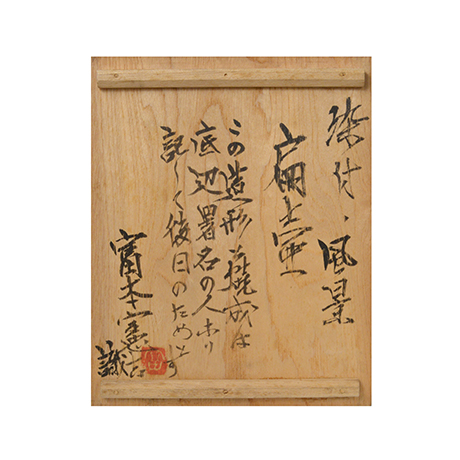 染付、風景
扁壺
この造形焼成は
底辺署名の人ホリ
記して後日のためとす
富本憲吉
識